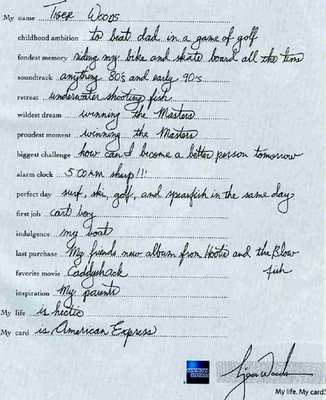 My name Tiger Woods
childhood ambition to beat dad in a game of golf
fondest memory riding my bike and skate board all the time
soundtrack anything 80's and early 90's
retreat underwater shooting fish
wildest dream winning the Masters
proudest moment winning the Masters
biggest challenge how can I become a better person tomorrow
alarm clock 5:00AM sharp!!!
perfect day surf, ski, golf, and spearfish in the same day
first job cart boy
indulgence my boat
last purchase My friends new album from Hootie and the Blow
fish
favorite movie Caddyshack
inspiration My parents
My life is hectic
My card is American Express
AMERICAN EXPRESS
Tiger Woods
My life. My card.